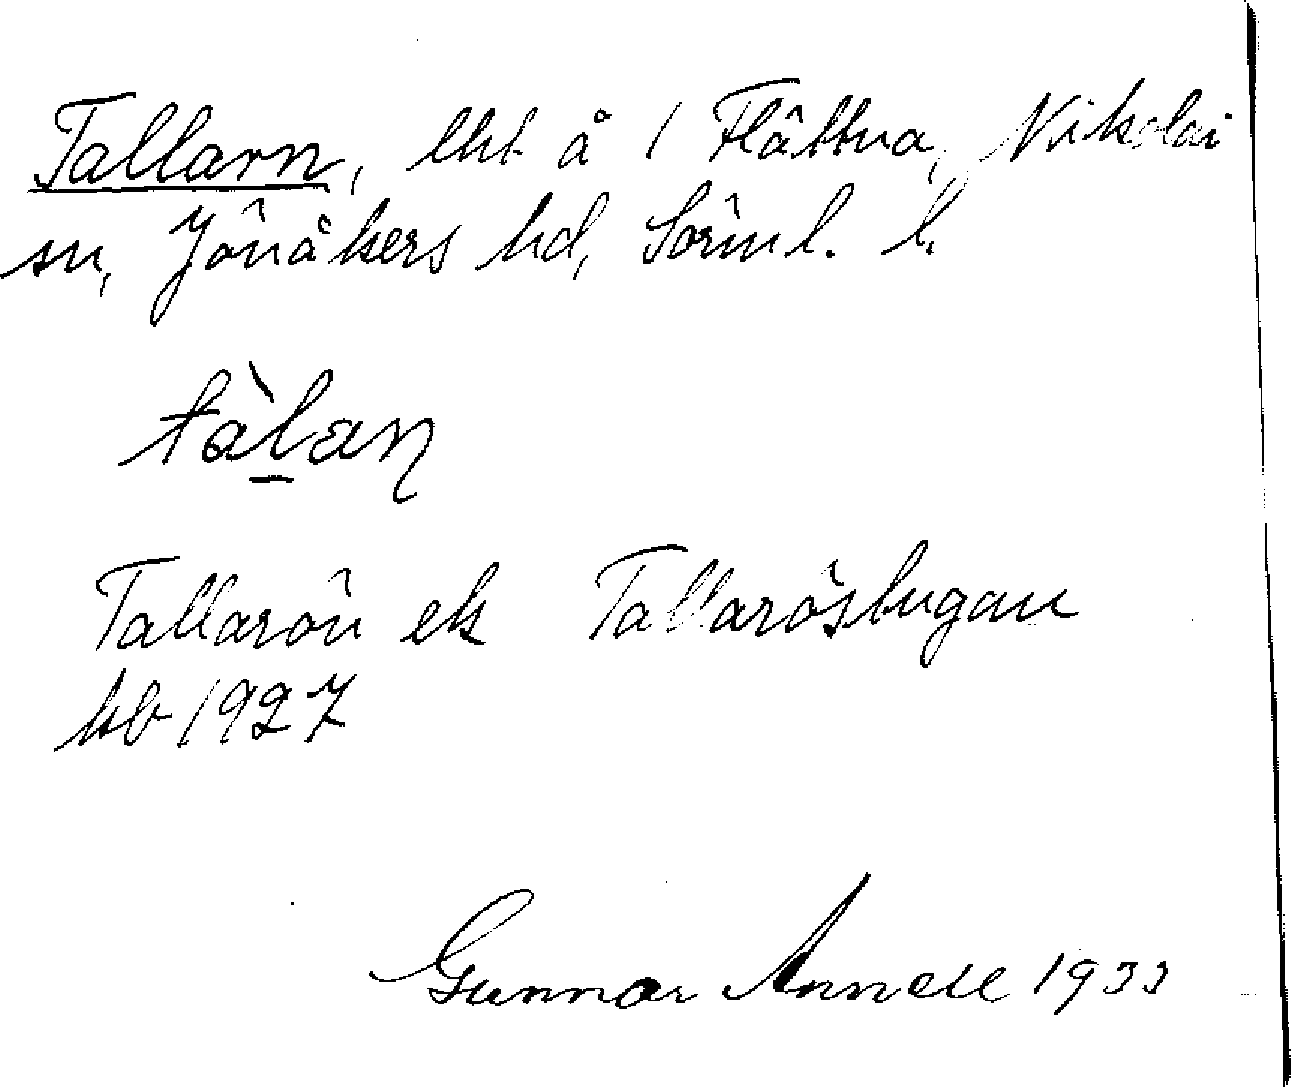 Tallarn, lht å 1 Flättna, Nikolai
sn, Jönåkers hd, Sörml. l.
tàlaṉ
Tallarön ek Tallaröstugan
kb 1927
Gunnar Annell 1933